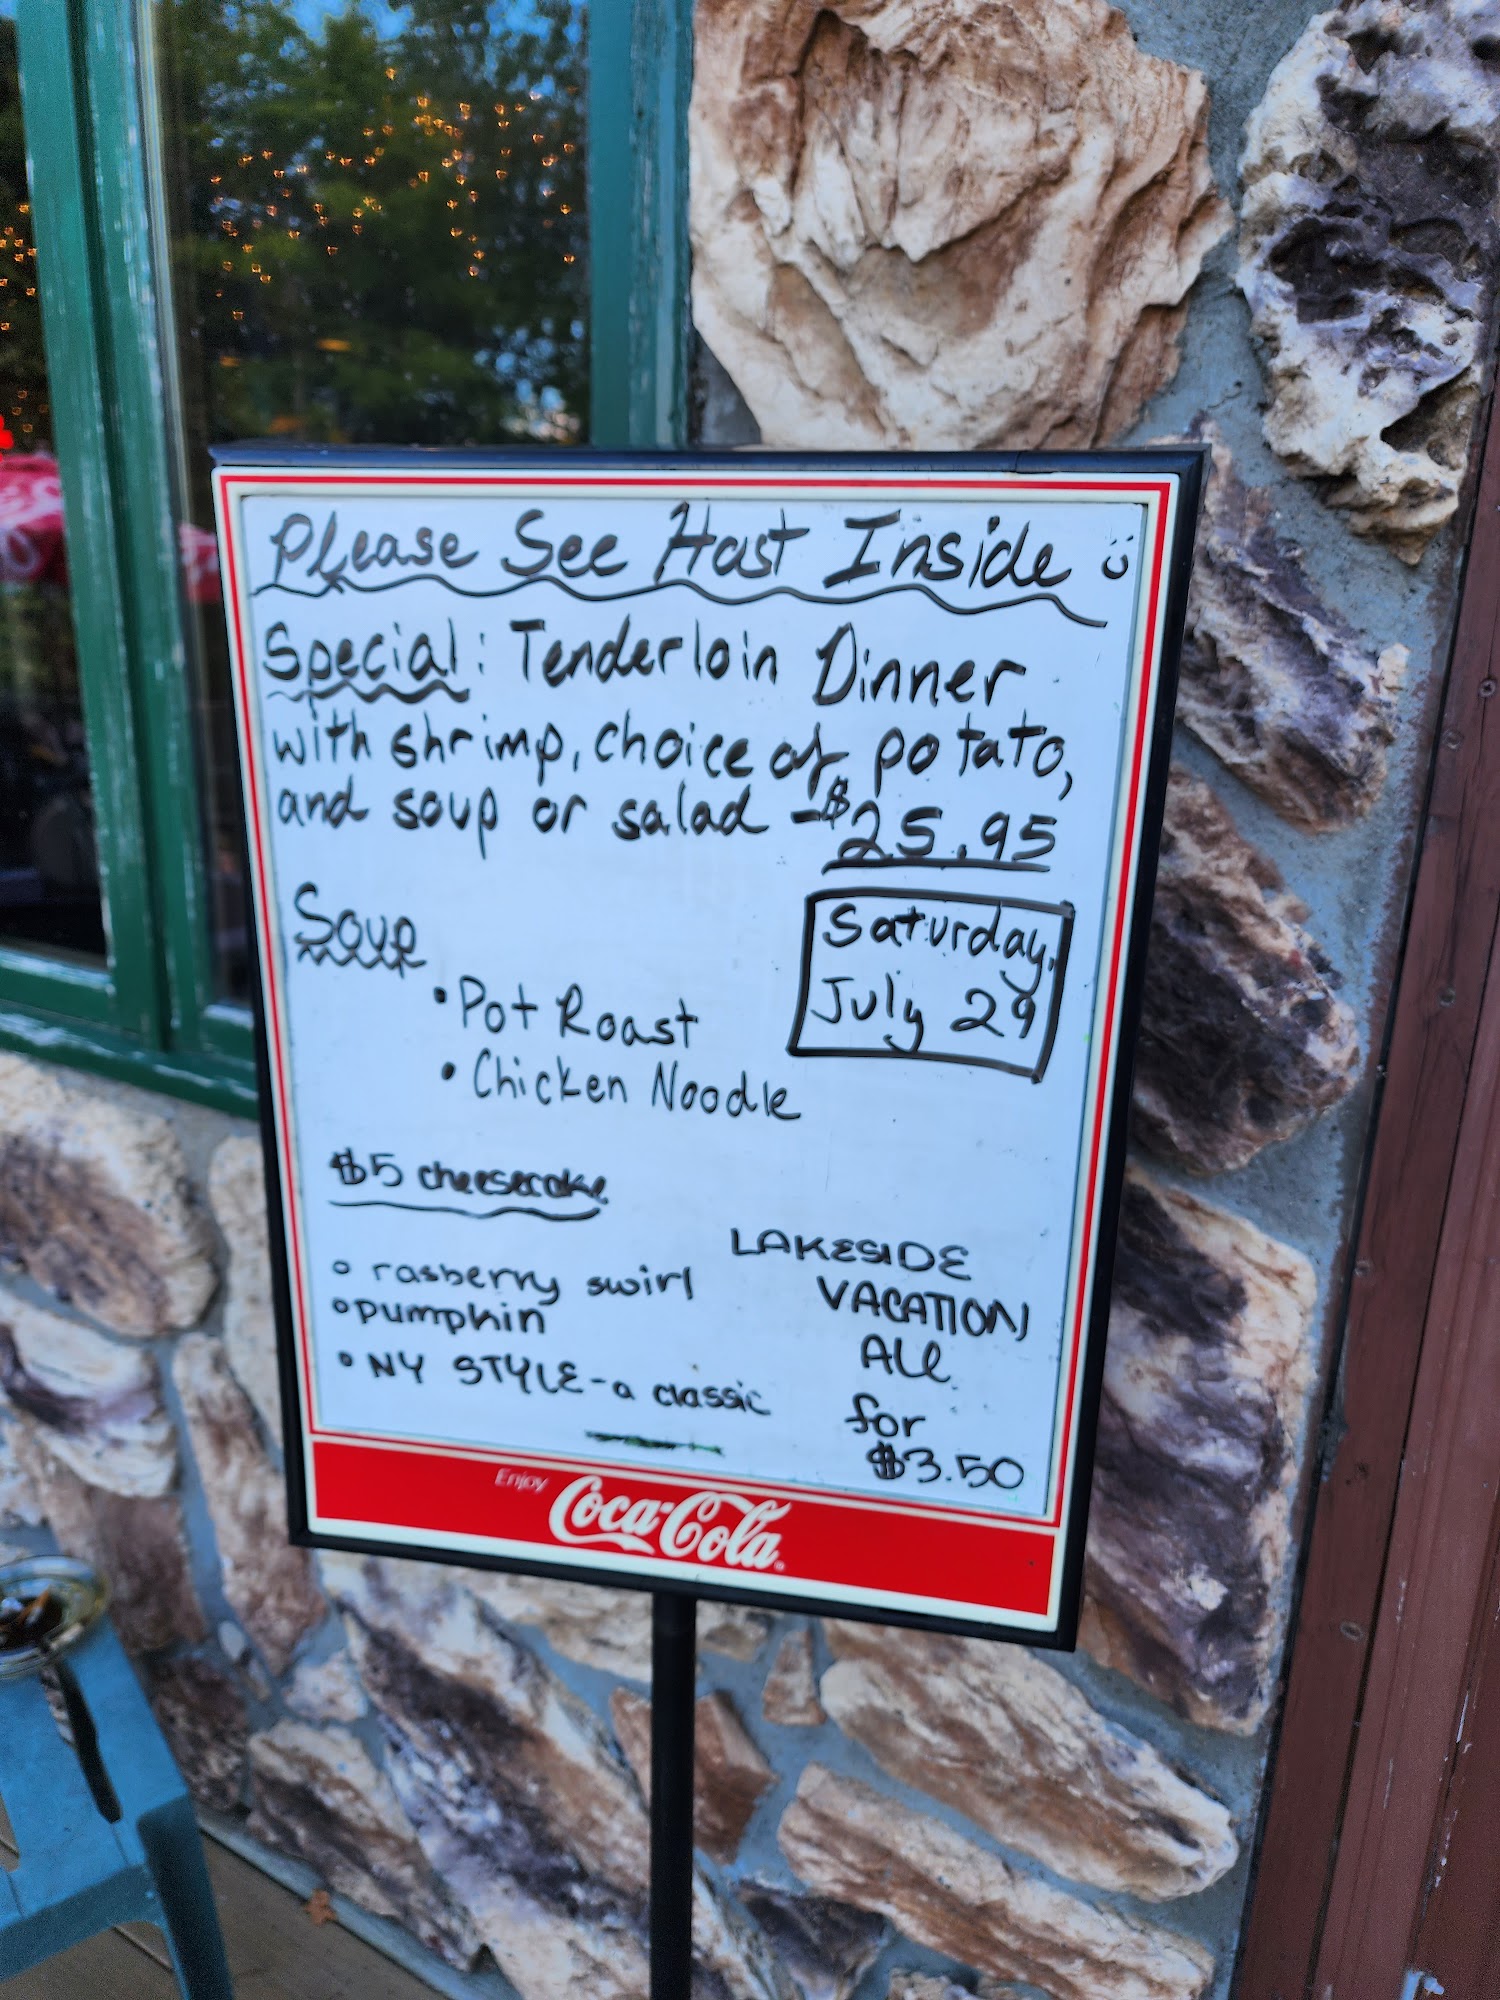 Please See Host Inside
Special: Tenderloin Dinner
with shrimp, choice of potato,
and soup or salad - $25.95
Soup
• Pot Roast
• Chicken Noodle
Saturday,
July 29
$5 cheesecake
• rasberry swirl
• pumpkin
• NY STYLE - a classic
LAKESIDE
VACATION
ALE
for
$3.50
Enjoy
Coca-Cola